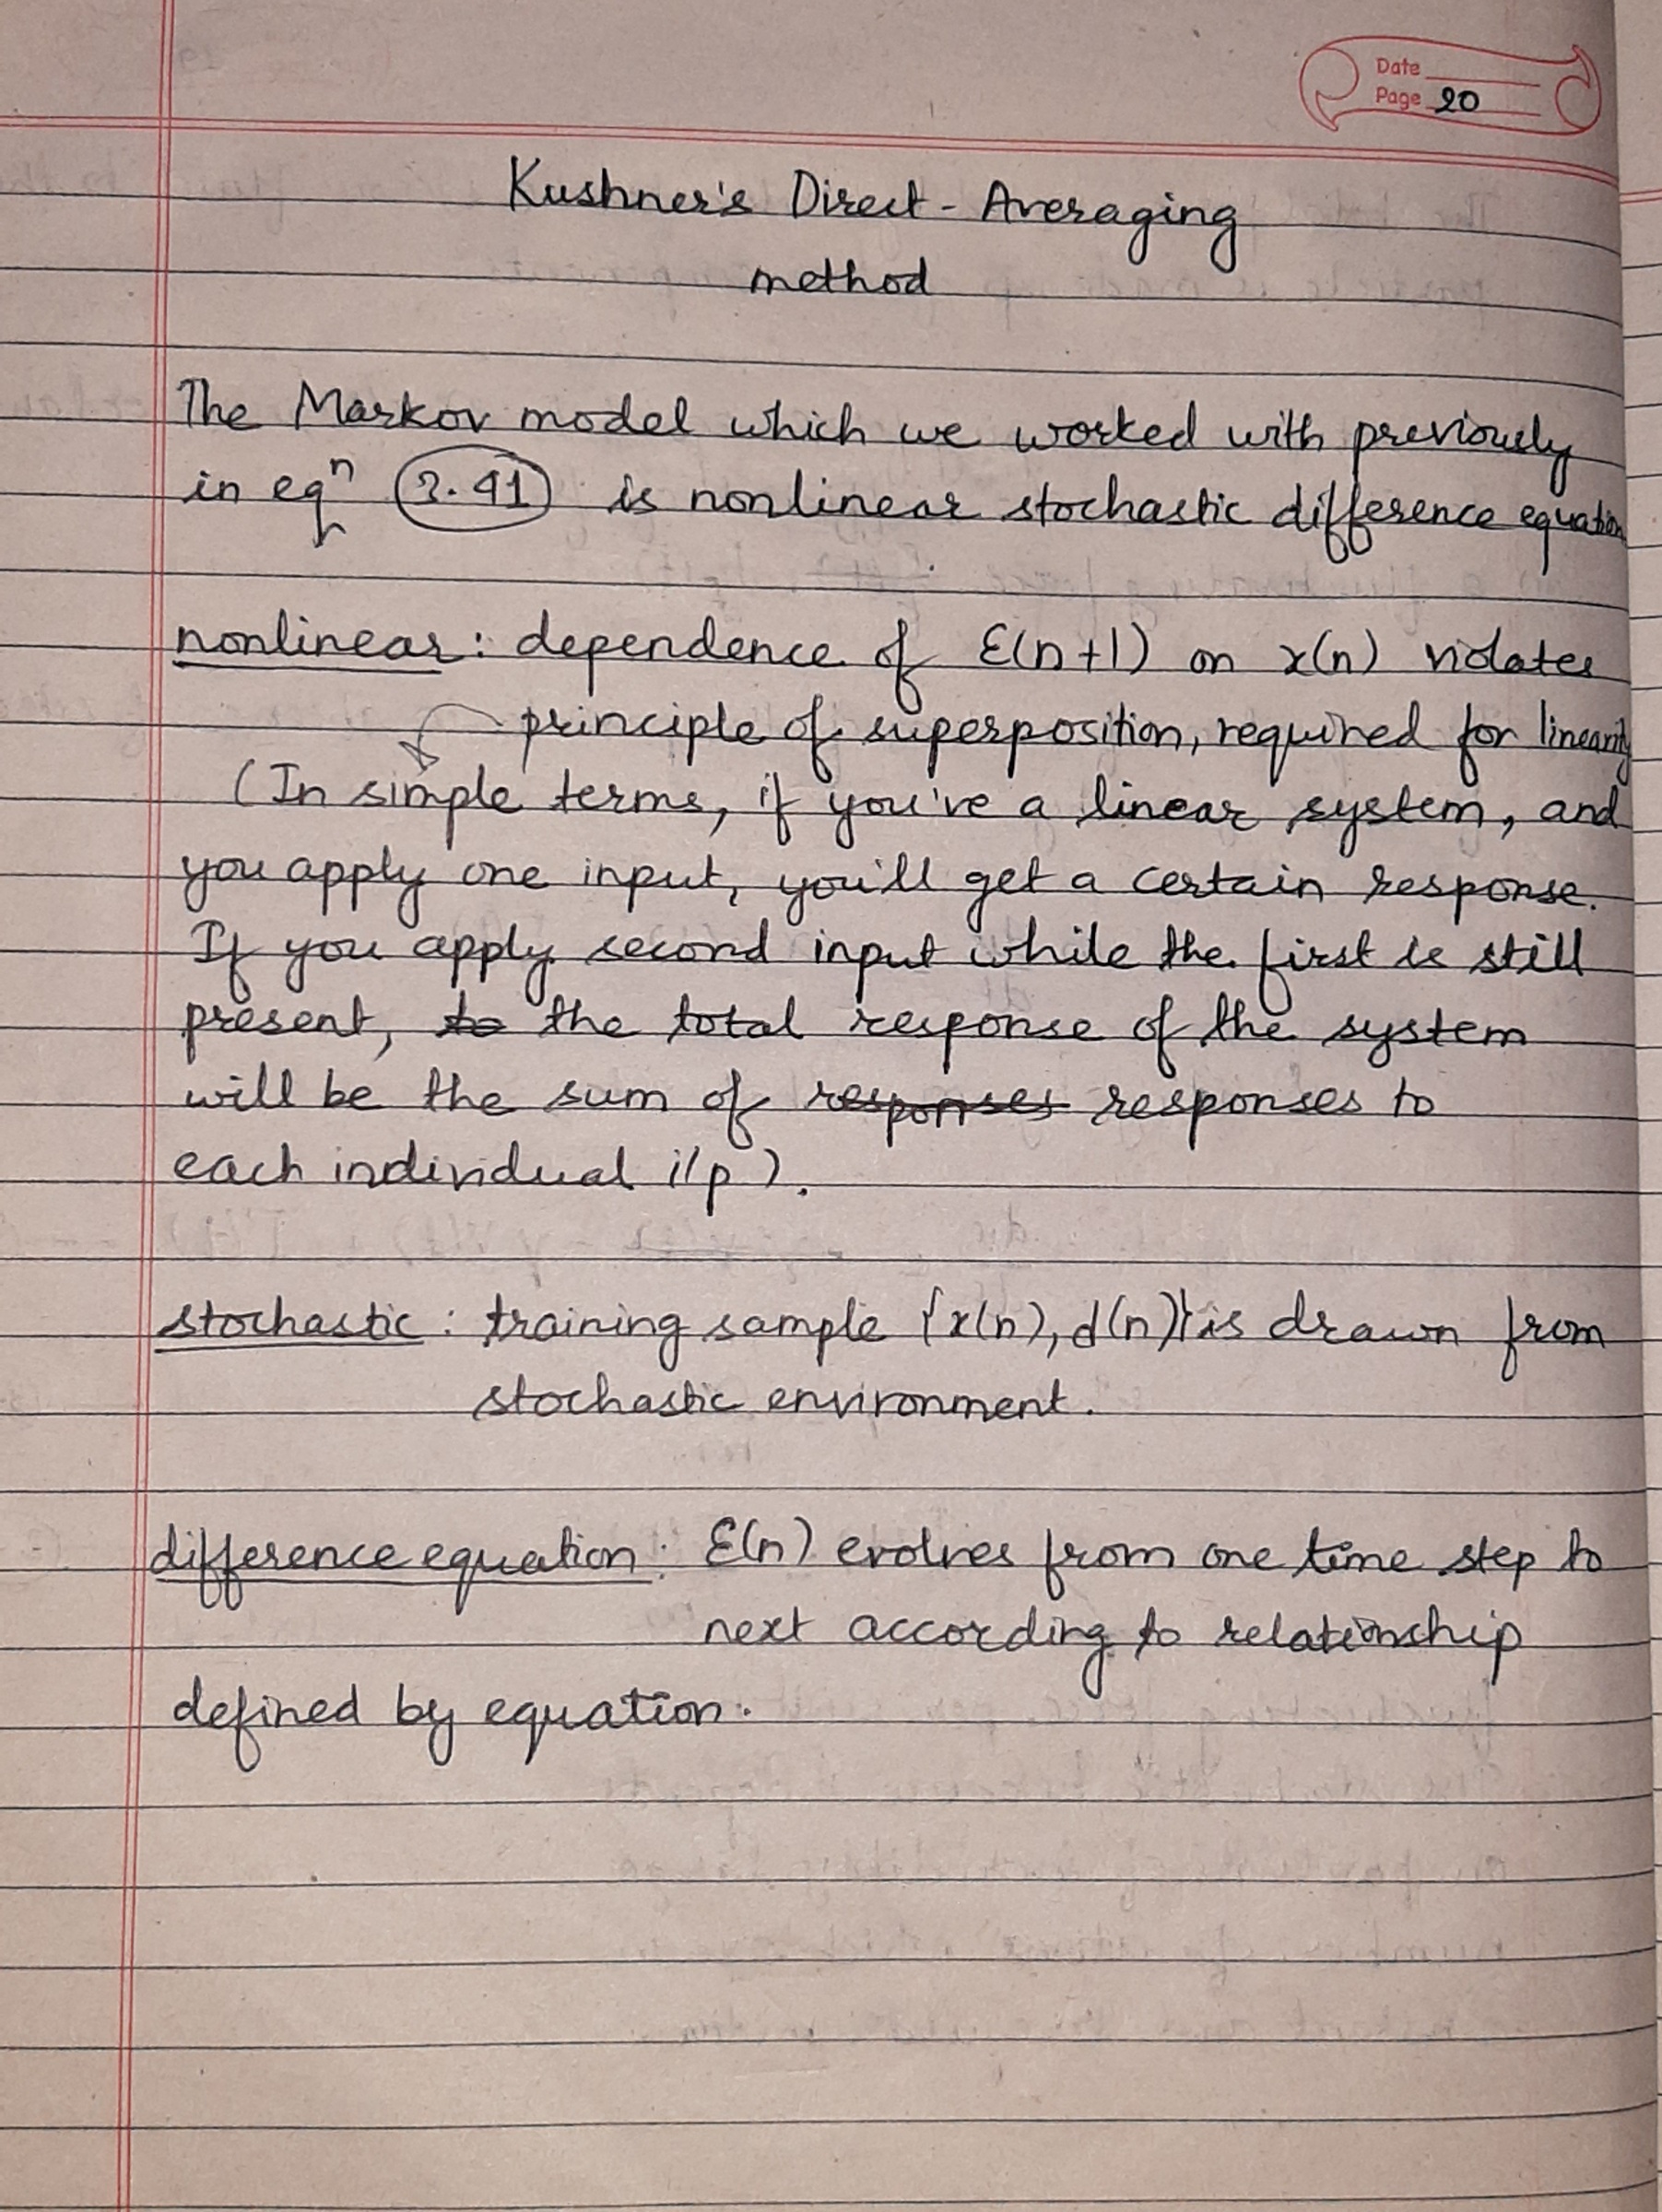 Date
Page 20
Kushner's Direct-Averaging
method
The Markov model which we worked with previously
in eqⁿ 3.41 is nonlinear stochastic difference equation
nonlinear: dependence of Ɛ(n+1) on x(n) violates
principle of superposition, required for linearity
(In simple terms, if you've a linear system, and
you apply one input, you'll get a certain response.
If you apply second input while the first is still
present, to the total response of the system
will be the sum of responses responses to
each individual i/p).
stochastic: training sample {x(n), d(n)} is drawn from
stochastic environment.
difference equation: Ɛ(n) evolves from one time step to
next according to relationship
defined by equation.